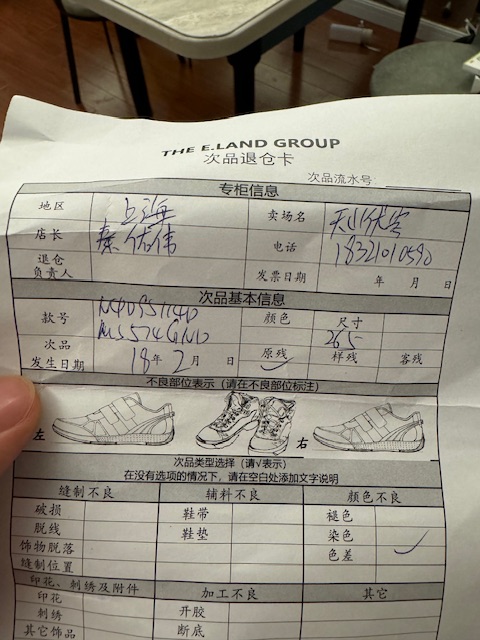 THE E.LAND GROUP
次品退仓卡
次品流水号
专柜信息
地区 上海 卖场名
店长 秦佑伟 电话
退仓负责人 发票日期 年 月 日
次品基本信息
款号 颜色 尺寸
MS574GND 265
次品发生日期 18年2月 日 原残 ✓ 样残 客残
不良部位表示（请在不良部位标注）
左 右
次品类型选择（请√表示）
在没有选项的情况下，请在空白处添加文字说明
缝制不良 辅料不良 颜色不良
破损 鞋带 褪色
脱线 鞋垫 染色
饰物脱落 色差 ✓
缝制位置
印花、刺绣及附件 加工不良 其它
印花
刺绣 开胶
其它饰品 断底